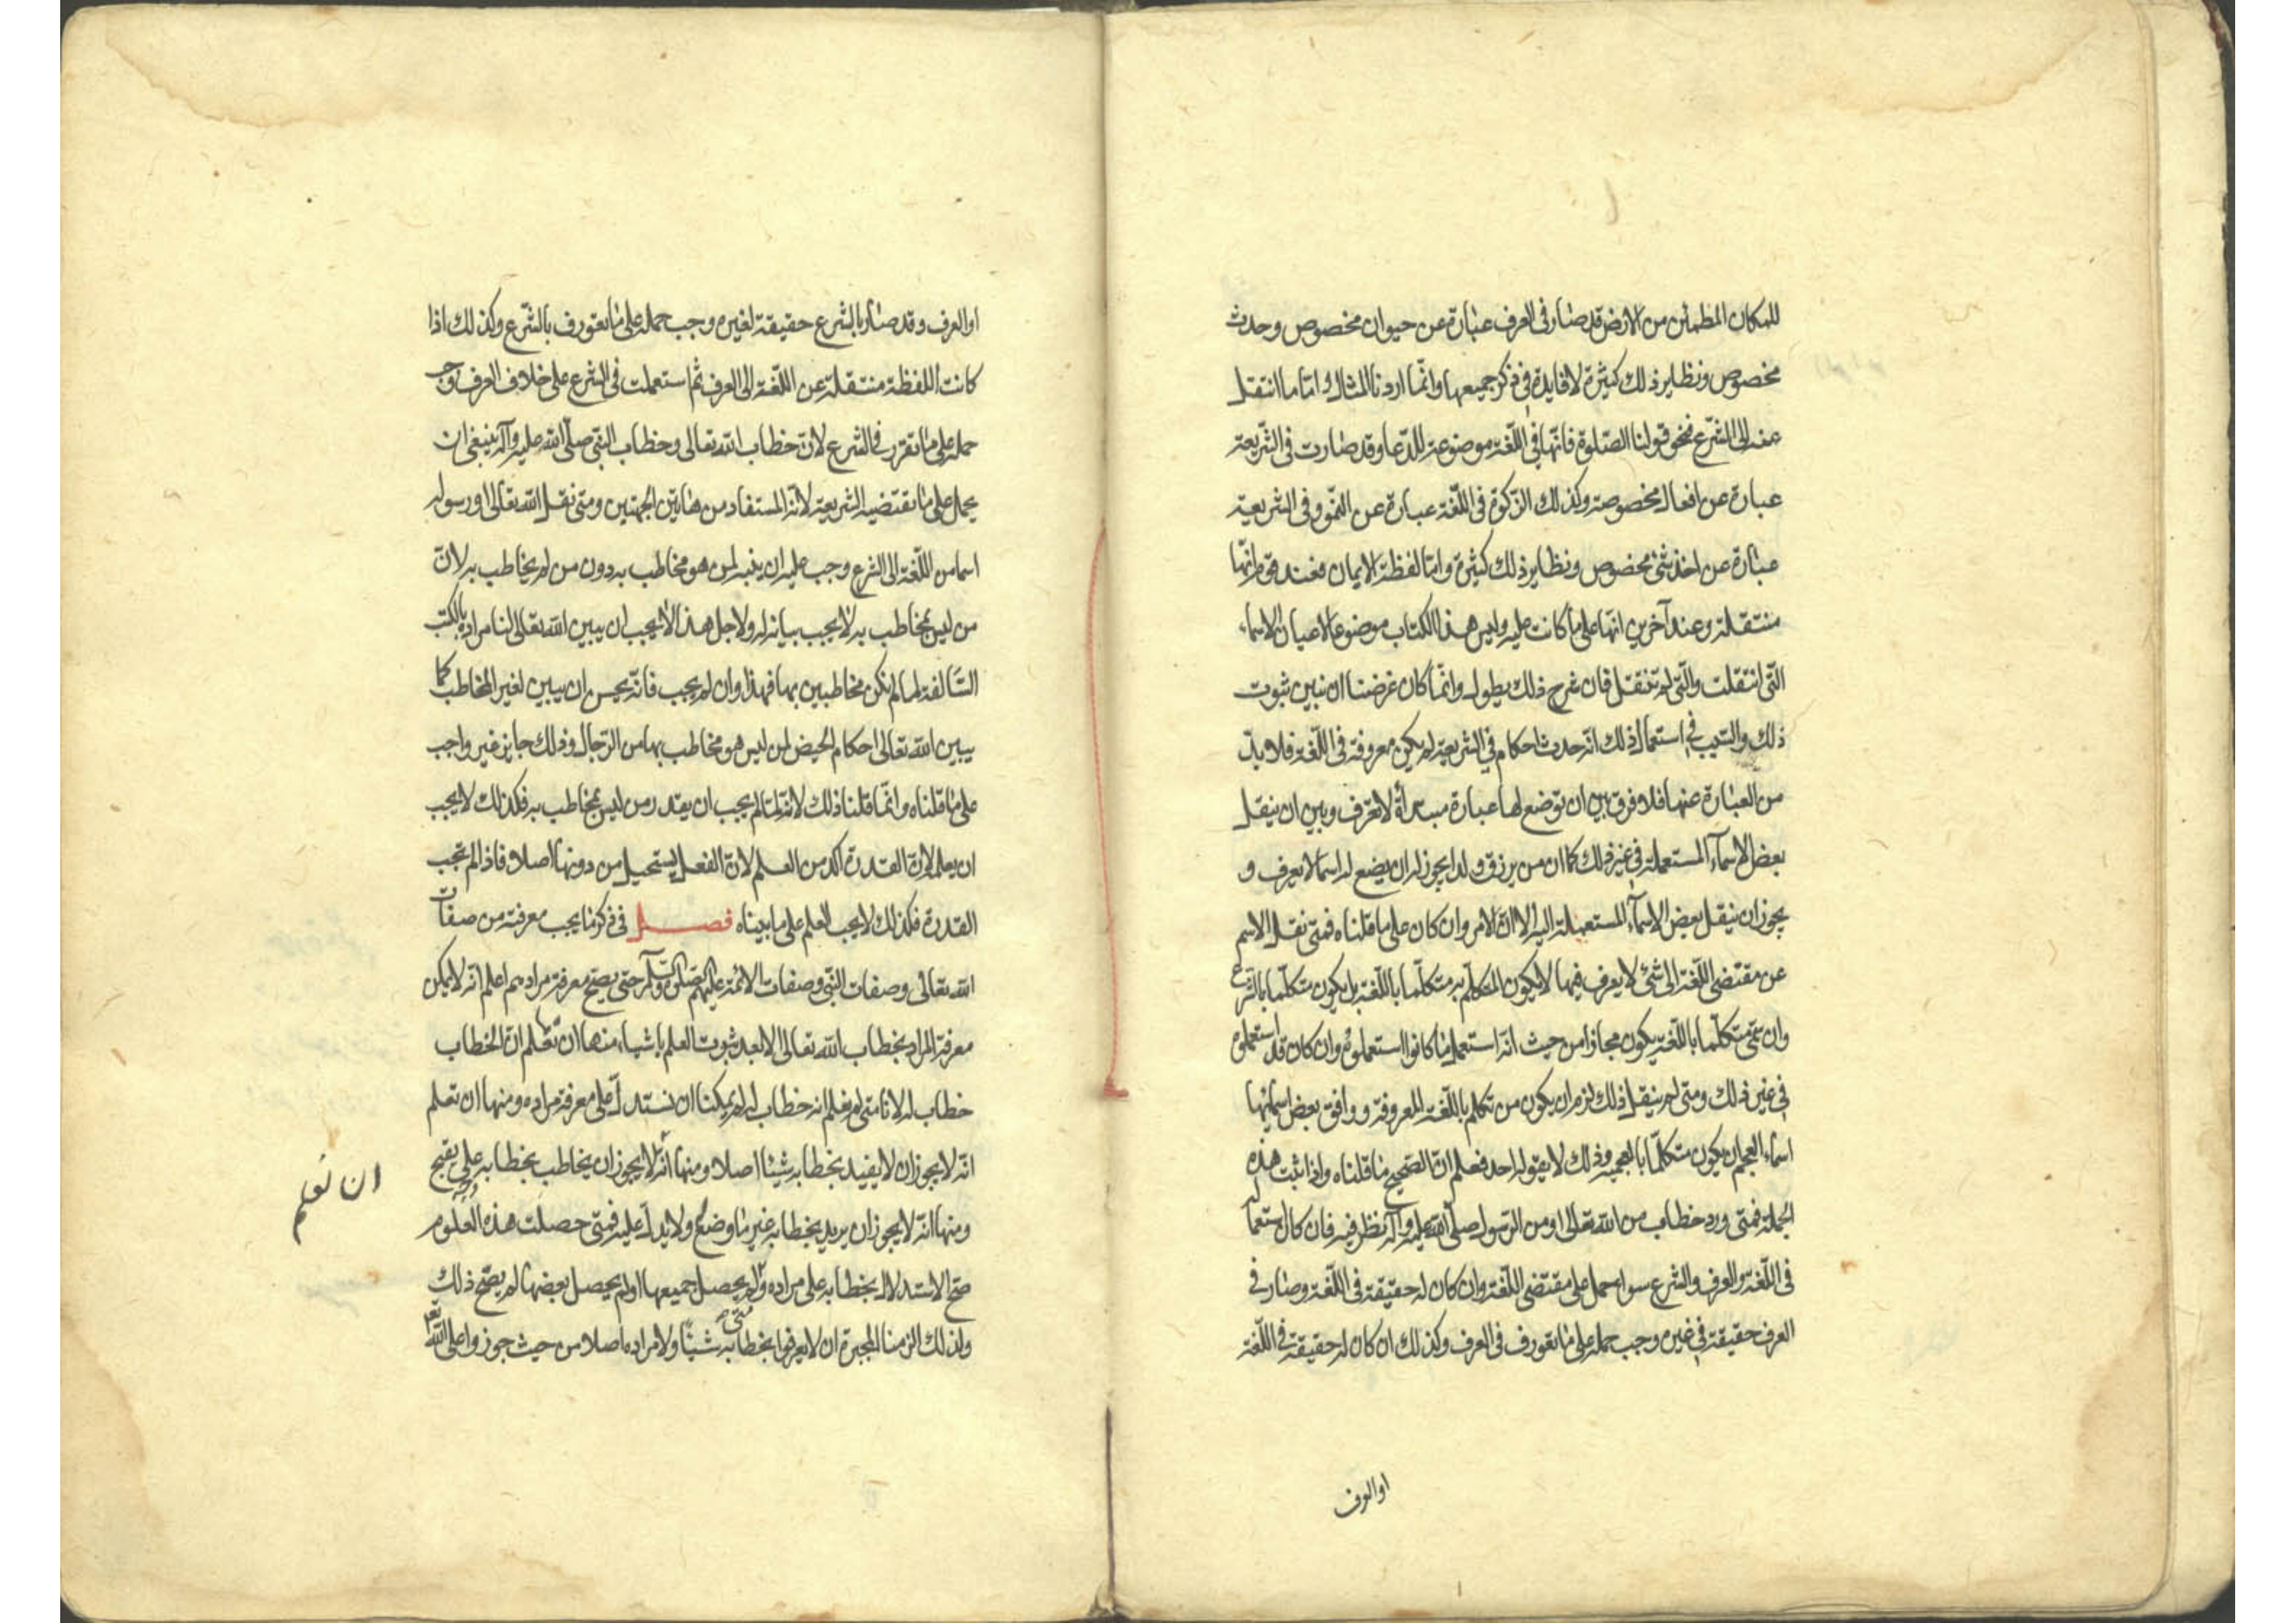 للمكان المطمئن من الارض قد صار فى العرف عبارة عن حيوان مخصوص وحدث
مخصوص ونظاير ذلك كثيرة لا فايدة فى ذكر جميعها وانما اردنا المثال واما ما انتقل
عنه الى الشرع فنحو قولنا الصلوة فانها فى اللغة موضوعة للدعا وقد صارت فى الشريعة
عبارة عن افعال مخصوصة وكذلك الزكوة فى اللغة عبارة عن النمو وفى الشريعة
عبارة عن اخذ شئ مخصوص ونظاير ذلك كثيرة واما لفظة الايمان فعند قوم انها
منتقلة وعند آخرين انها على ما كانت عليه وليس هذا الكتاب موضوعا لاعيان الاسماء
التى انتقلت والتى لم تنتقل فان شرح ذلك يطول وانما كان غرضنا ان نبين ثبوت
ذلك والسبب فى استعمال ذلك انه حدث احكام فى الشريعة لم يكن معروفة فى اللغة فلا بد
من العبارة عنها فلا فرق بين ان توضع لها عبارة مبتدأة لا تعرف وبين ان ينقل
بعض الاسمآء المستعملة فى غير ذلك كما ان من يرزق ولدا يجوز له ان يضع له اسما لا يعرف و
يجوز ان ينقل بعض الاسمآء المستعملة اليه الا ان الامر وان كان على ما قلناه فمتى نقل الاسم
عن مقتضى اللغة الى شئ لا يعرف فيها لا يكون المتكلم به متكلما باللغة بل يكون متكلما بالشرع
وان سمى متكلما باللغة يكون مجازا من حيث انه استعمل ما كانوا استعملوه وان كان قد استعملوه
فى غير ذلك ومتى لم ينقل ذلك لزم ان يكون من تكلم باللغة المعروفة ووافق بعض اسمائها
اسماء العجم ان يكون متكلما بالعجمية وذلك لا يقوله احد فعلم ان الصحيح ما قلناه واذا ثبت هذه
الجملة فمتى ورد خطاب من الله تعالى او من الرسول صلى الله عليه وآله نظر فيه فان كان استعماله
فى اللغة والعرف والشرع سواء حمل على مقتضى اللغة وان كان له حقيقة فى اللغة وصار فى
العرف حقيقة فى غيره وجب حمله على ما تعورف فى العرف وكذلك ان كان له حقيقة فى اللغة
او العرف
او العرف وقد صار بالشرع حقيقة لغيره وجب حمله على ما تعورف بالشرع وكذلك اذا
كانت اللفظة منتقلة عن اللغة الى العرف ثم استعملت فى الشرع على خلاف العرف وجب
حمله على ما تقرر فى الشرع لان خطاب الله تعالى وخطاب النبى صلى الله عليه وآله ينبغى ان
يحمل على ما تقتضيه الشريعة لانه المستفاد من هاتين الجهتين ومتى نقل الله تعالى او رسوله
اسما من اللغة الى الشرع وجب عليه ان يبينه لمن هو مخاطب به دون من لم يخاطب به لان
من ليس بمخاطب به لا يجب بيانه له ولاجل هذا لا يجب ان يبين الله تعالى لنا مراده بالكتب
السالفة لما لم نكن مخاطبين بها فهذا وان لم يجب فانه يحسن ان يبين لغير المخاطب كما
يبين الله تعالى احكام الحيض لمن ليس هو مخاطب بها من الرجال وذلك جايز غير واجب
على ما قلناه وانما قلنا ذلك لانه لما لم يجب ان يقدر من ليس بمخاطب به فكذلك لا يجب
ان يعلم لان القدرة آكد من العلم لان الفعل يستحيل من دونها اصلا فاذا لم تجب
القدرة فكذلك لا يجب العلم على ما بيناه فصل فى ذكر ما يجب معرفته من صفات
الله تعالى وصفات النبى وصفات الائمة عليهم الصلوة والسلم حتى يصح معرفة مرادهم اعلم انه لا يمكن
معرفة المراد بخطاب الله تعالى الا بعد ثبوت العلم باشياء منها ان نعلم ان الخطاب
خطاب له لانا متى لم نعلم انه خطاب له لم يمكننا ان نستدل على معرفة مراده ومنها ان نعلم
انه لا يجوز ان لا يفيد بخطابه شيئا اصلا ومنها انه لا يجوز ان يخاطب بخطابه على وجه يقبح
ان نعلم
ومنها انه لا يجوز ان يريد بخطابه غير ما وضع له ولا يدل عليه فمتى حصلت هذه العلوم
صح الاستدلال بخطابه على مراده ومتى لم يحصل جميعها او لم يحصل بعضها لم يصح ذلك
ولذلك الزمنا المجبرة ان لا يعرفوا بخطابه شيئا ولا مراده اصلا من حيث جوزوا على الله تعم